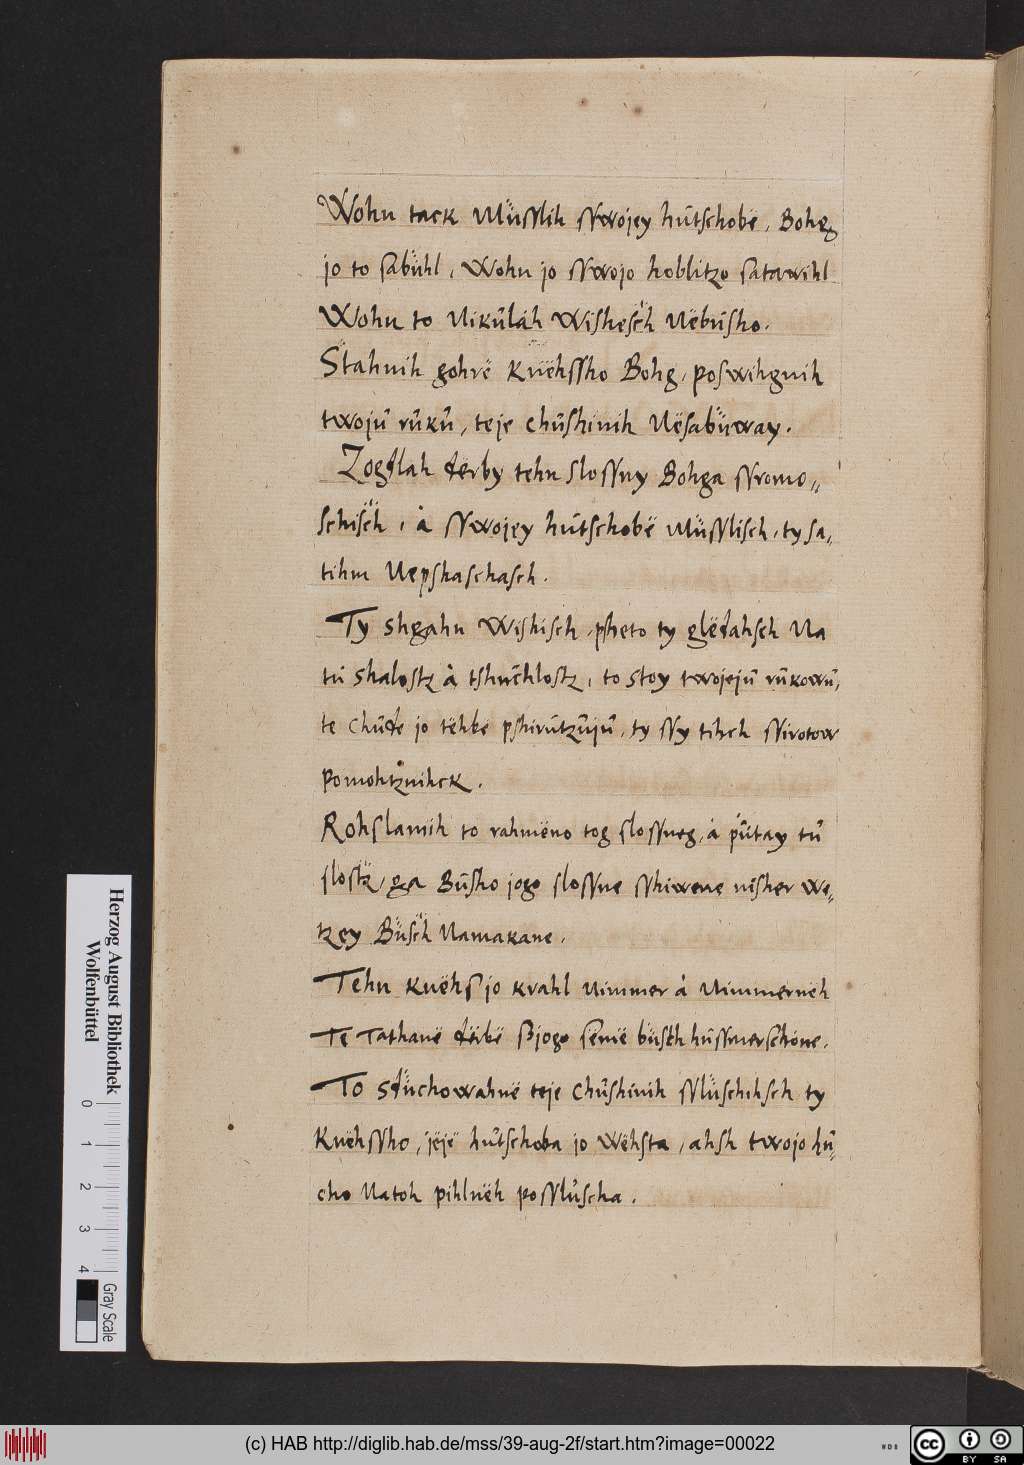 Wohn tack Müsslih sswojey hůtschobë, Bohg
jo to sabühl, Wohn jo sswojo hoblitzo satawihl
Wohn to Nikůlah Wishesch Nëbůsho.
Stahnih gohrë Knëhssho Bohg, poswihgnih
twojů růků, teje chůshinih Nësabüway.
Zogdlah dërby tehn slossny Bohga ssromo„
schisch, å sswojey hůtschobë Müsslisch, ty sa„
tihm Nepshaschasch.
Ty shgahn Wishisch, psheto ty glëdahsch Na
tů shalostz å tshůchlostz, to stoy twojejů růkowů,
te chůde jo tëhbe pshirůtzůjů, ty ssy tihch ssirotow
pomohtznihck.
Rohslamih to rahmëno tog slossneg, å půtay tů
slostz, ga Bůsho jogo slossne sshiwene nisher we„
tzey Büsch Namakane.
Tehn knëhs jo krahl Nimmer å Nimmernëh
Te Tathanë dërbë ss jogo semë büsch hůssmerschone.
To sdüchowahnë teje chůshinih sslüschihsch ty
Knëhssho, jëjë hůtschoba jo wëhsta, ahsh twojo hů„
cho Natoh pihlnëh posslůscha.
Herzog August Bibliothek
Wolfenbüttel
0 1 2 3 4
Gray Scale
(c) HAB http://diglib.hab.de/mss/39-aug-2f/start.htm?image=00022
WDB
cc
BY SA